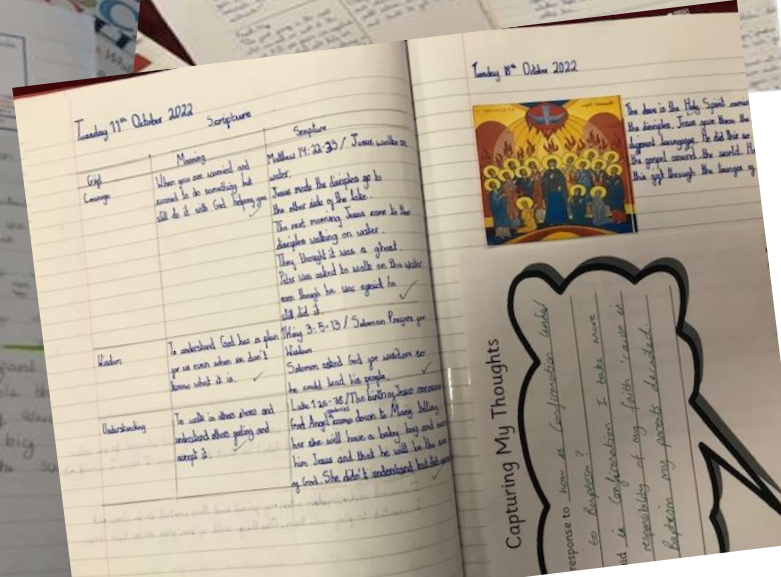 Tuesday 11th October 2022
Scripture
Gift
Meaning
Scripture
Courage
When you are worried and
scared to do something but
still do it with God helping you
Matthew 14:22-33 / Jesus walks on
water.
Jesus made the disciples go to
the other side of the lake.
The next morning Jesus came to the
disciples walking on water.
They thought it was a ghost.
Peter was asked to walk on the water
even though he was afraid he
still did it.
Wisdom
To understand God has a plan
for us even when we don't
know what it is.
1 King 3:5-13 / Solomon Prayers for
Wisdom
Solomon asked God for wisdom so
he could lead his people.
Understanding
To walk in others shoes and
understand others feeling and
accept it.
Luke 1:26-38 / The birth of Jesus
God Angel came down to Mary telling
her she will have a baby boy and
him Jesus and that he will be the son
of God. She didn't understand but did
Tuesday 18th October 2022
The dove is the Holy Spirit
the disciples. Jesus gave them the
different languages. He did this so
the gospel around the world.
this gift through the tongues of
Capturing My Thoughts
response to how is Confirmation
to Baptism?
in Confirmation I take more
responsibility of my faith 'cause in
Baptism my parents decided